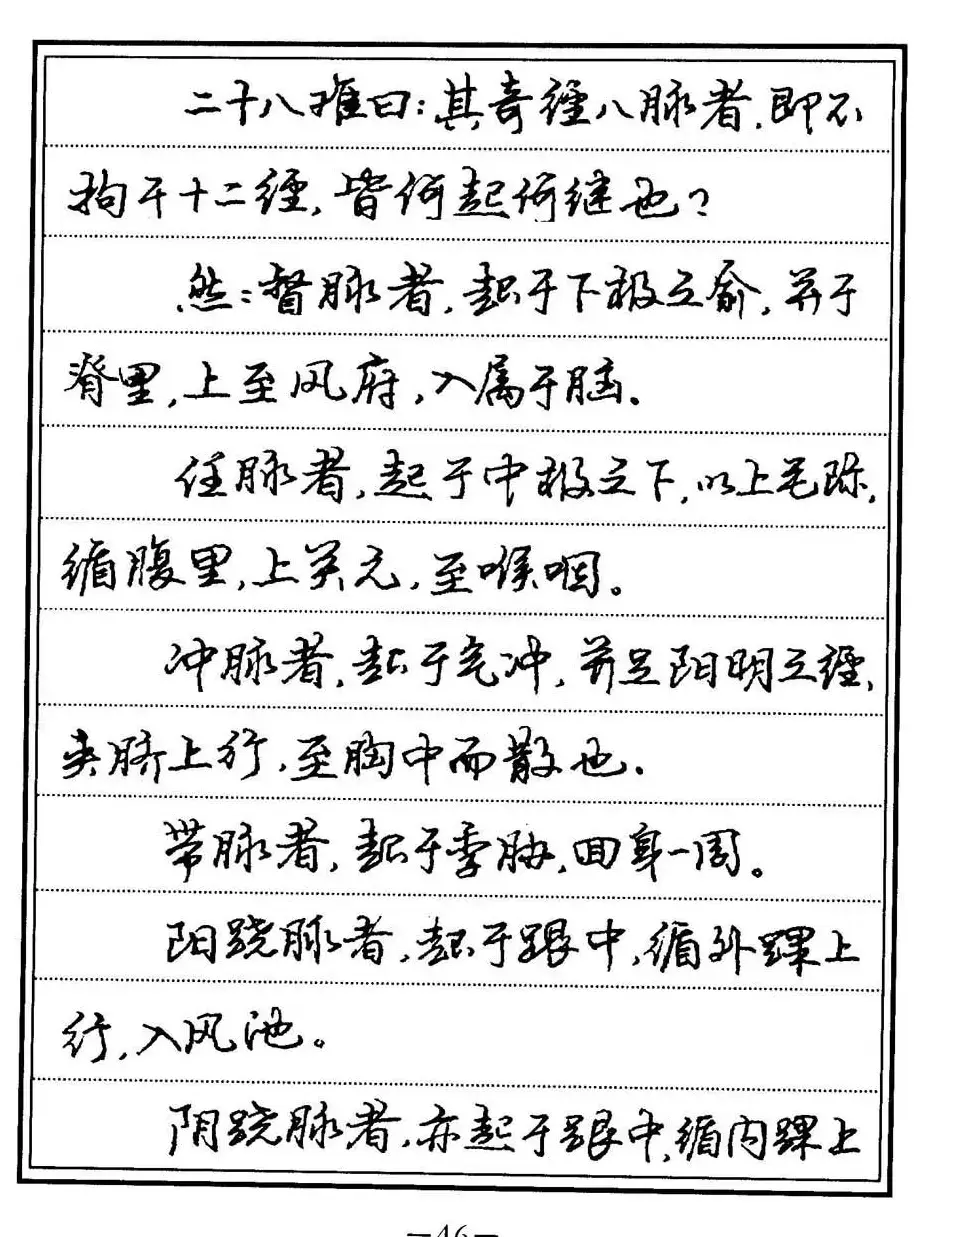 二十八难曰：其奇经八脉者，即不
拘于十二经，皆何起何继也？
然：督脉者，起于下极之俞，并于
脊里，上至风府，入属于脑。
任脉者，起于中极之下，以上毛际，
循腹里，上关元，至喉咽。
冲脉者，起于气冲，并足阳明之经，
夹脐上行，至胸中而散也。
带脉者，起于季胁，回身一周。
阳跷脉者，起于跟中，循外踝上
行，入风池。
阴跷脉者，亦起于跟中，循内踝上
—46—